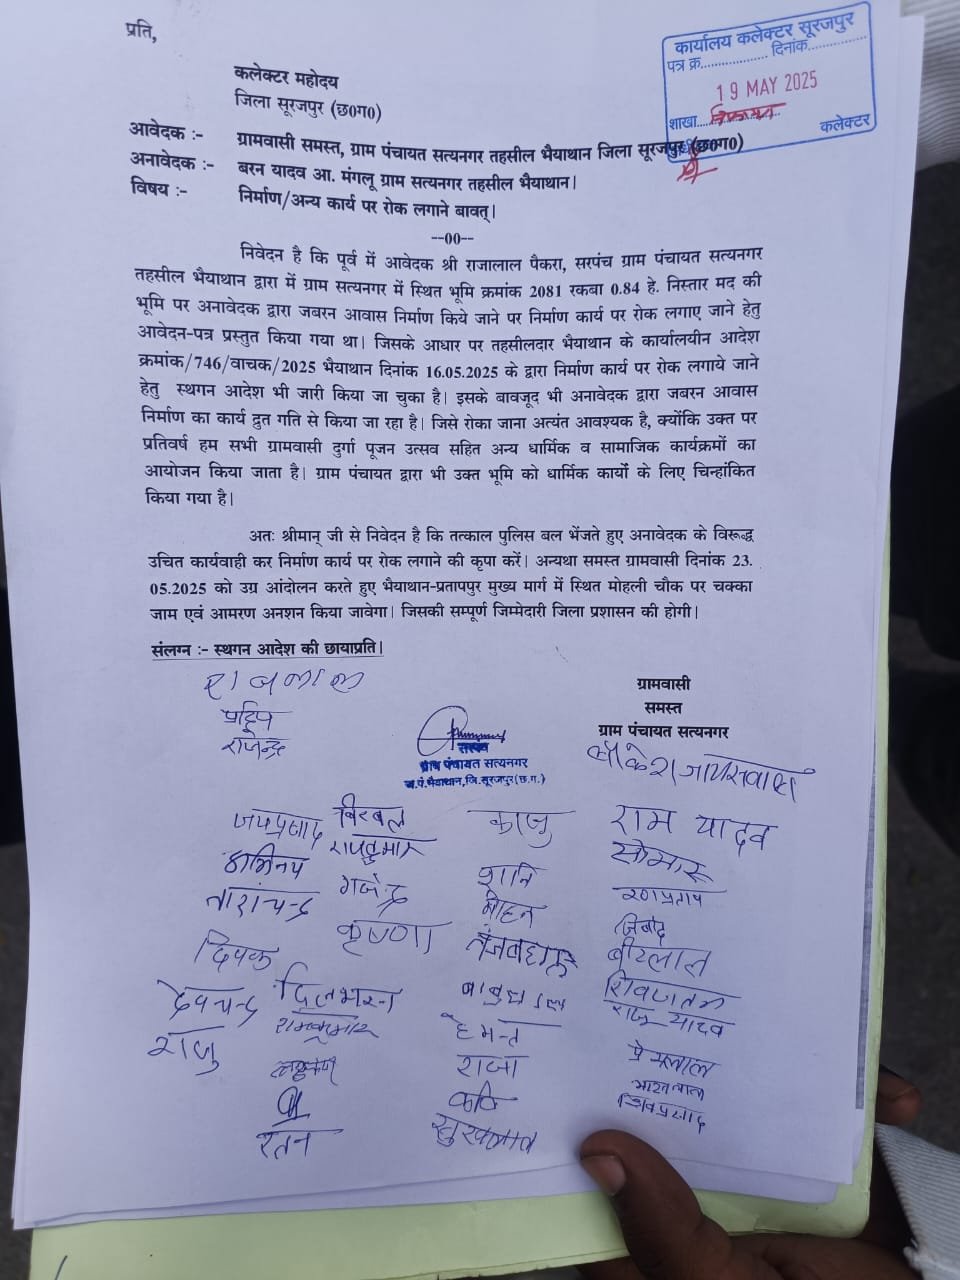 प्रति,
कार्यालय कलेक्टर सूरजपुर
पत्र क्र.................. दिनांक...............
19 MAY 2025
शाखा.....शिकायत.....
कलेक्टर
कलेक्टर महोदय
जिला सूरजपुर (छ0ग0)
आवेदक :- ग्रामवासी समस्त, ग्राम पंचायत सत्यनगर तहसील भैयाथान जिला सूरजपुर (छ0ग0)
अनावेदक :- बरन यादव आ. मंगलू ग्राम सत्यनगर तहसील भैयाथान।
विषय :- निर्माण/अन्य कार्य पर रोक लगाने बावत्।
--00--
निवेदन है कि पूर्व में आवेदक श्री राजालाल पैकरा, सरपंच ग्राम पंचायत सत्यनगर
तहसील भैयाथान द्वारा में ग्राम सत्यनगर में स्थित भूमि क्रमांक 2081 रकबा 0.84 हे. निस्तार मद की
भूमि पर अनावेदक द्वारा जबरन आवास निर्माण किये जाने पर निर्माण कार्य पर रोक लगाए जाने हेतु
आवेदन-पत्र प्रस्तुत किया गया था। जिसके आधार पर तहसीलदार भैयाथान के कार्यालयीन आदेश
क्रमांक/746/वाचक/2025 भैयाथान दिनांक 16.05.2025 के द्वारा निर्माण कार्य पर रोक लगाये जाने
हेतु स्थगन आदेश भी जारी किया जा चुका है। इसके बावजूद भी अनावेदक द्वारा जबरन आवास
निर्माण का कार्य द्रुत गति से किया जा रहा है। जिसे रोका जाना अत्यंत आवश्यक है, क्योंकि उक्त पर
प्रतिवर्ष हम सभी ग्रामवासी दुर्गा पूजन उत्सव सहित अन्य धार्मिक व सामाजिक कार्यक्रमों का
आयोजन किया जाता है। ग्राम पंचायत द्वारा भी उक्त भूमि को धार्मिक कार्यो के लिए चिन्हांकित
किया गया है।
अतः श्रीमान् जी से निवेदन है कि तत्काल पुलिस बल भेंजते हुए अनावेदक के विरूद्ध
उचित कार्यवाही कर निर्माण कार्य पर रोक लगाने की कृपा करें। अन्यथा समस्त ग्रामवासी दिनांक 23.
05.2025 को उग्र आंदोलन करते हुए भैयाथान-प्रतापपुर मुख्य मार्ग में स्थित मोहली चौक पर चक्का
जाम एवं आमरण अनशन किया जावेगा। जिसकी सम्पूर्ण जिम्मेदारी जिला प्रशासन की होगी।
संलग्न :- स्थगन आदेश की छायाप्रति।
ग्रामवासी
समस्त
ग्राम पंचायत सत्यनगर
राजलाल
प्रदिप
राजेन्द्र
सरपंच
ग्राम पंचायत सत्यनगर
ज.पं.भैयाथान,जि.सूरजपुर(छ.ग.)
जयप्रसाद बिरबल काजु राम यादव
राजकुमार सोमारू
अभिनय गजेन्द्र शानि रणप्रताप
ताराचन्द्र मोहन
कृष्णा तेजबहादुर बीरलाल
दिपक
देवचन्द्र दिलभरन हेमन्त राजू यादव
राजु रामकुमार राजा प्रेमलाल
भारतलाल
शिवप्रसाद
रतन